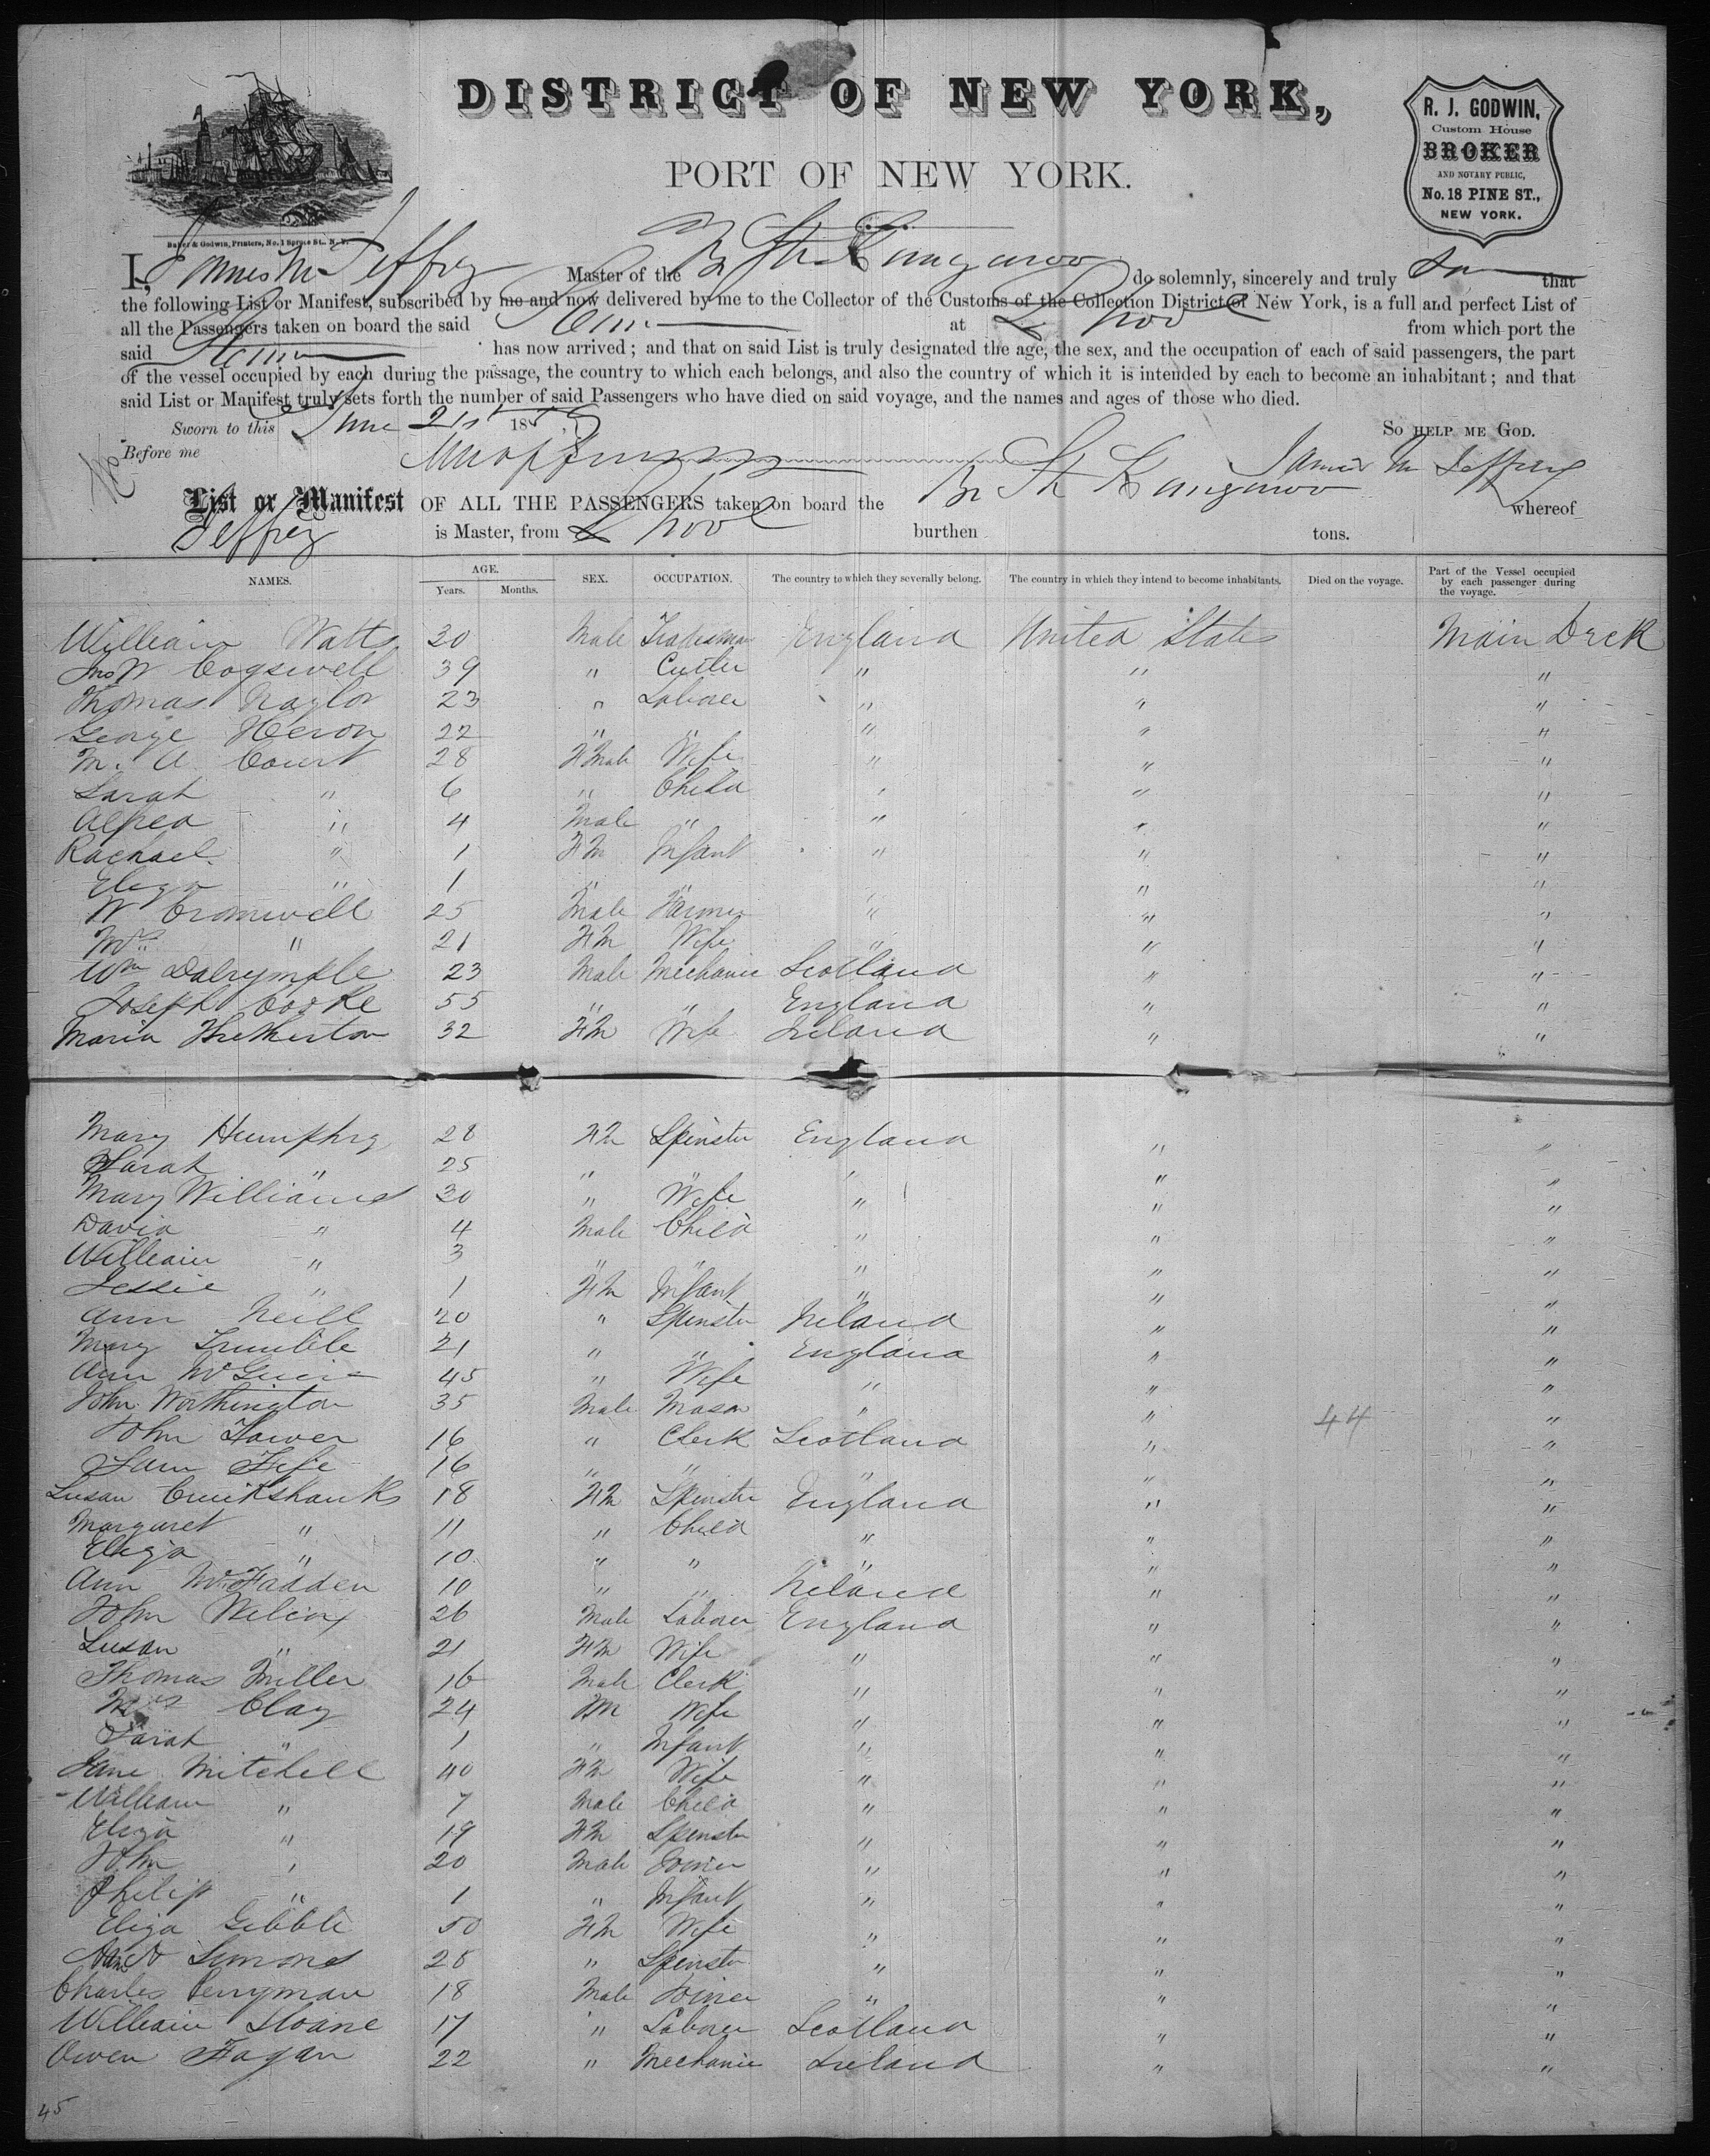 DISTRICT OF NEW YORK,
PORT OF NEW YORK.
R. J. GODWIN,
Custom House
BROKER
AND NOTARY PUBLIC,
No. 18 PINE ST.,
NEW YORK.
Baker & Godwin, Printers, No. 1 Spruce St., N. Y.
I, James M Jeffrey Master of the Br Str Kangaroo do solemnly, sincerely and truly that
the following List or Manifest, subscribed by me and now delivered by me to the Collector of the Customs of the Collection District of New York, is a full and perfect List of
all the Passengers taken on board the said at L pool from which port the
said has now arrived; and that on said List is truly designated the age, the sex, and the occupation of each of said passengers, the part
of the vessel occupied by each during the passage, the country to which each belongs, and also the country of which it is intended by each to become an inhabitant; and that
said List or Manifest truly sets forth the number of said Passengers who have died on said voyage, and the names and ages of those who died.
Sworn to this June 21st 185 SO HELP ME GOD.
Before me James M Jeffrey
List or Manifest OF ALL THE PASSENGERS taken on board the Br St Kangaroo whereof
Jeffrey is Master, from L pool burthen tons.
NAMES. AGE. Years. Months. SEX. OCCUPATION. The country to which they severally belong. The country in which they intend to become inhabitants. Died on the voyage. Part of the Vessel occupied by each passenger during the voyage.
William Watts 30 Male Tradesman England United States Main Deck
Jno W Cogswell 39 " Cutler " " "
Thomas Naylor 23 " Laborer " " "
George Heron 22 " " " " "
M. A Court 28 F Male Wife " " "
Sarah " 6 " Child " " "
Alfred " 4 Male " " " "
Rachael " 1 FM Infant " " "
Eliza " 1 " " " " "
W Cromwell 25 Male Farmer " " "
Mrs " 21 FM Wife " " "
Wm Dalrymple 23 Male Mechanic Scotland " "
Joseph Cooke 55 " " England " "
Maria 32 FM Wife Ireland " "
Mary Humphry 28 FM Spinster England " "
Sarah " 25 " " " " "
Mary Williams 30 " Wife " " "
David " 4 Male Child " " "
William " 3 " " " " "
Jessie " 1 FM Infant " " "
Ann Neill 20 " Spinster Ireland " "
Mary Trumble 21 " " England " "
Ann McGuire 45 " Wife " " "
John Worthington 35 Male Mason " " 44 "
John 16 " Clerk Scotland " "
Sam Fife 16 " " " " "
Susan Cruikshanks 18 FM Spinster England " "
Margaret " 11 " Child " " "
Eliza " 10 " " " " "
Ann McFadden 10 " " Ireland " "
John Wilcox 26 Male Laborer England " "
Susan " 21 FM Wife " " "
Thomas Miller 16 Male Clerk " " "
Mrs Clay 24 FM Wife " " "
Sarah " 1 " Infant " " "
Jane Mitchell 40 FM Wife " " "
William " 7 Male Child " " "
Eliza " 19 FM Spinster " " "
John " 20 Male Joiner " " "
Philip " 1 " Infant " " "
Eliza Gibble 50 FM Wife " " "
Simons 28 " Spinster " " "
Charles Perryman 18 Male Joiner " " "
William Sloane 17 " Laborer Scotland " "
Owen Fagan 22 " Mechanic Ireland " "
45